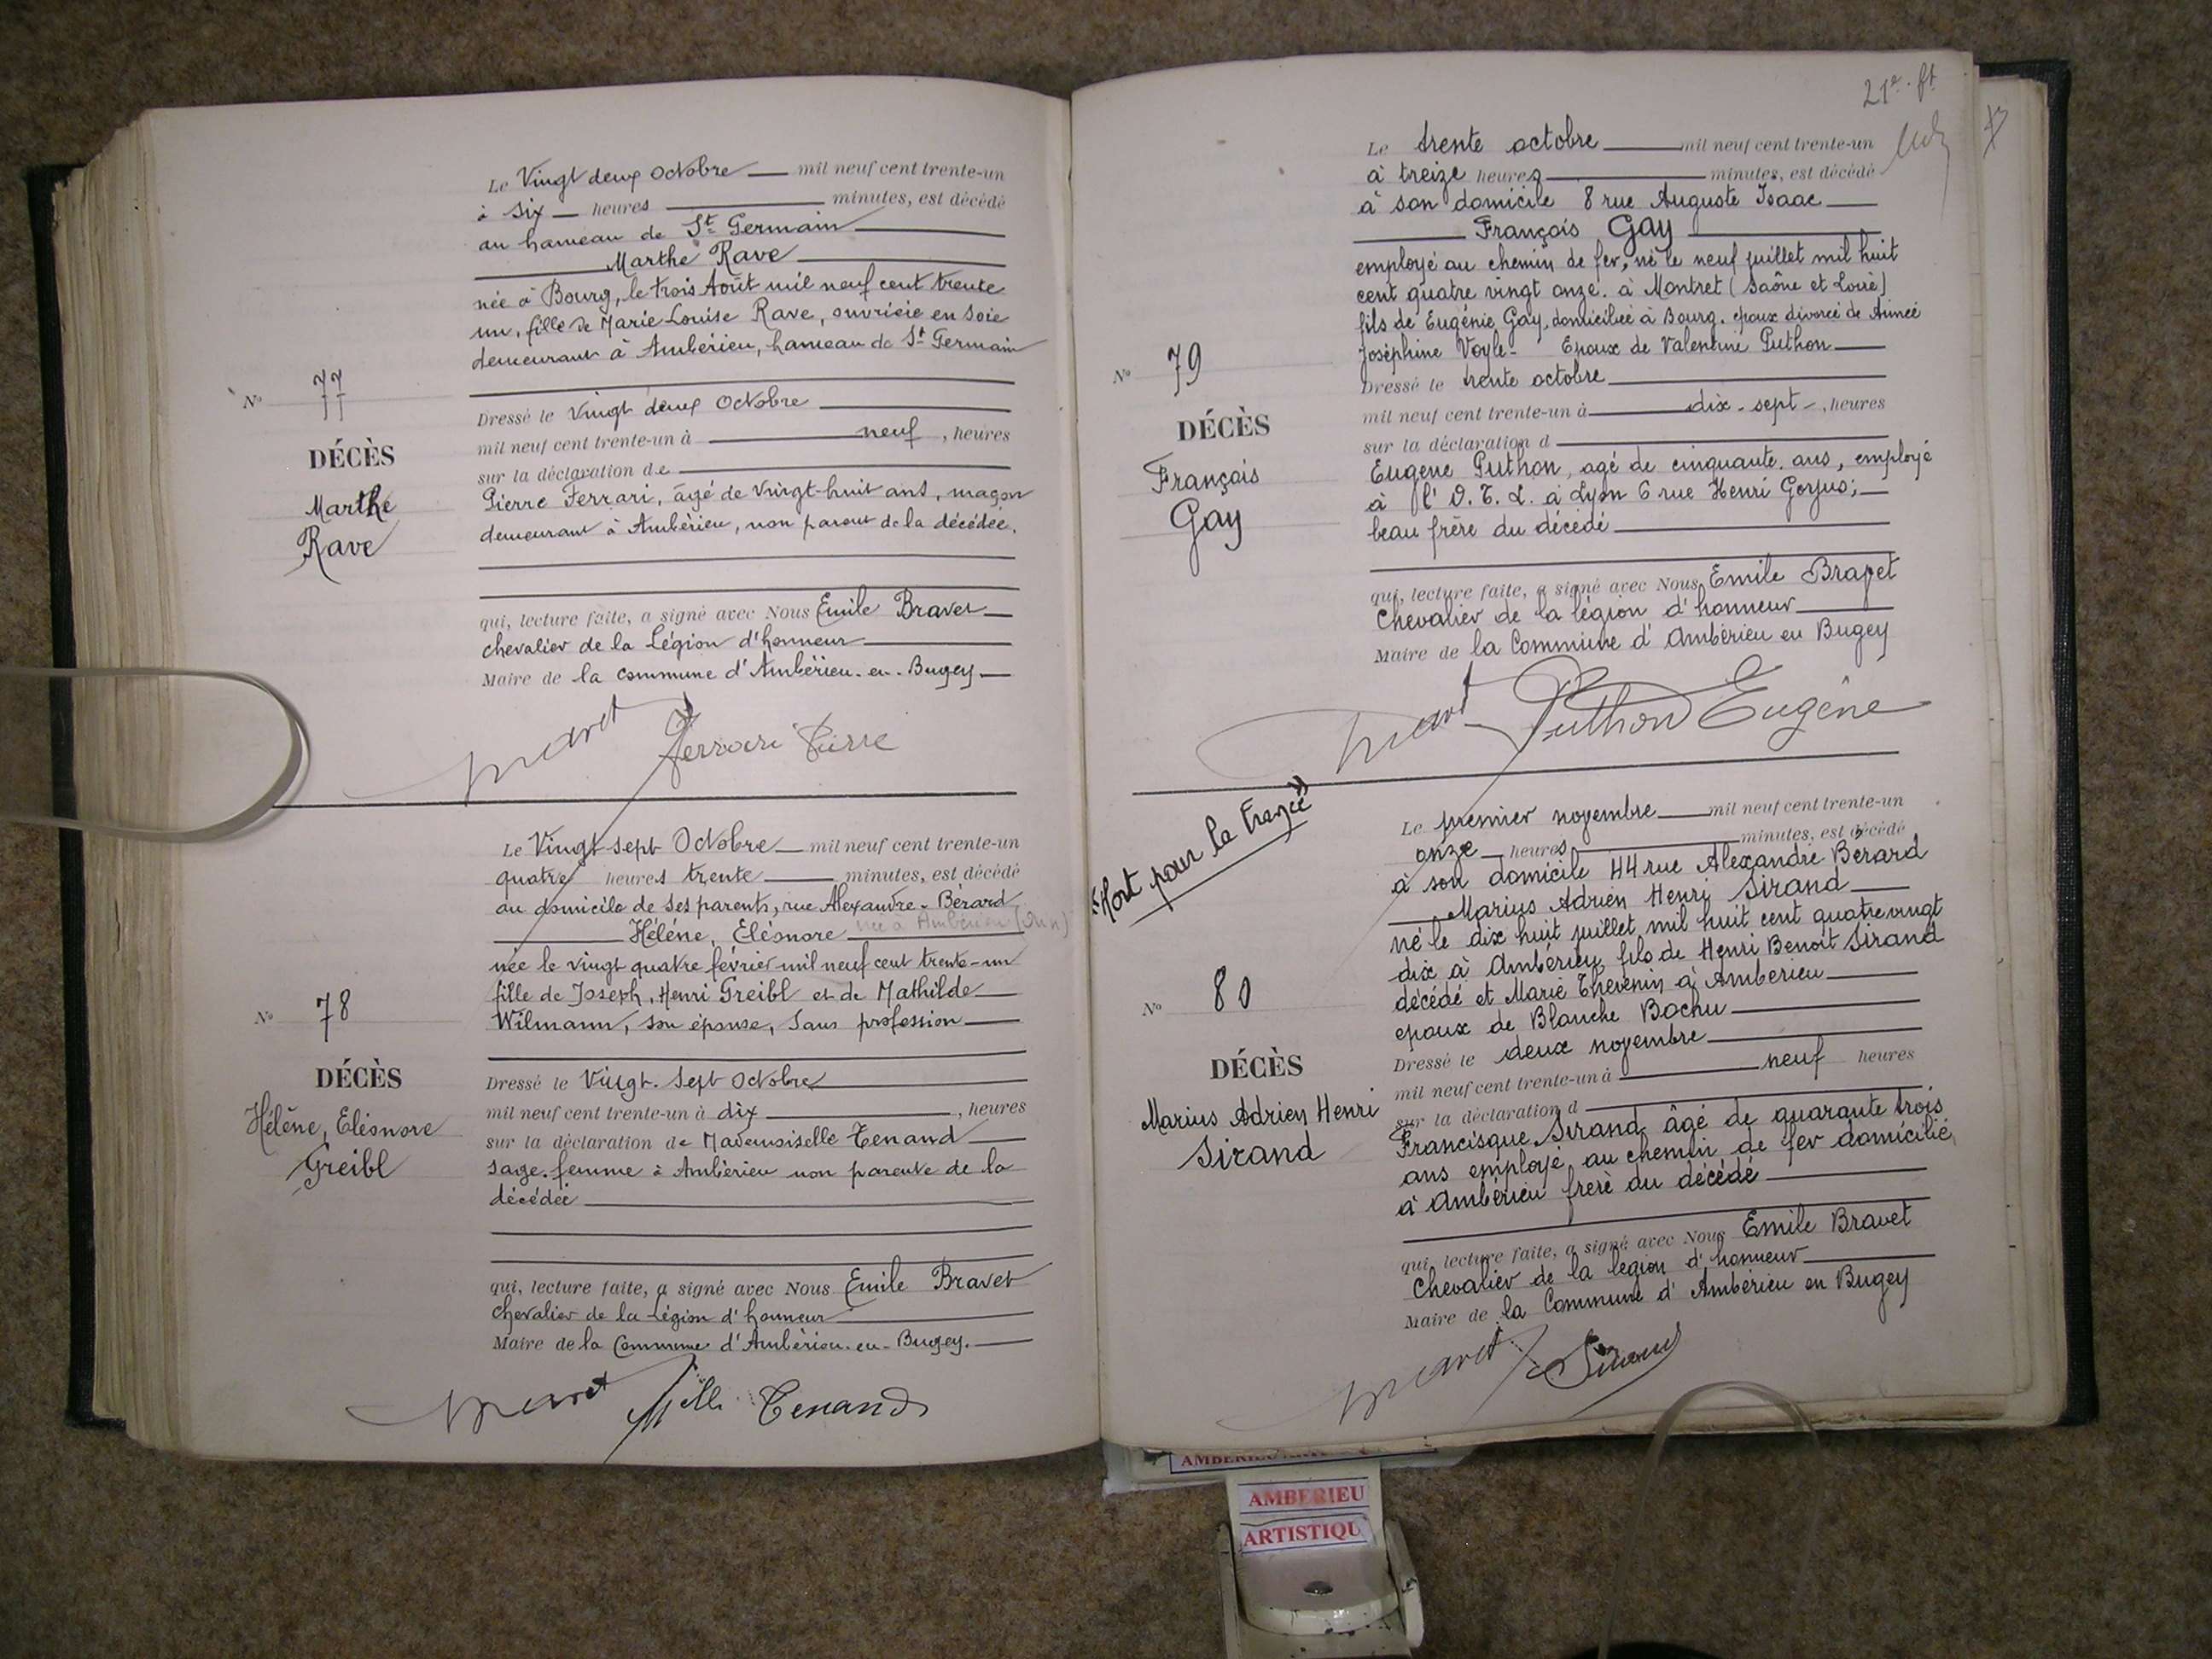 Le Vingt deux Octobre mil neuf cent trente-un
à six heures minutes, est décédé
au hameau de St Germain
Marthe Rave
née à Bourg, le trois Août mil neuf cent trente
un, fille de Marie Louise Rave, ouvrière en soie
demeurant à Ambérieu, hameau de St Germain
No 77
DÉCÈS
Marthe
Rave
Dressé le Vingt deux Octobre
mil neuf cent trente-un à neuf, heures
sur la déclaration de
Pierre Ferrari, âgé de vingt-huit ans, maçon
demeurant à Ambérieu, non parent de la décédée.
qui, lecture faite, a signé avec Nous Emile Bravet
chevalier de la Légion d'honneur
Maire de la commune d'Ambérieu-en-Bugey
Ferrari Pierre
Le Vingt-sept Octobre mil neuf cent trente-un
quatre heures trente minutes, est décédé
au domicile de ses parents, rue Alexandre-Bérard
Hélène, Eléonore née à Ambérieu (Ain)
née le vingt quatre février mil neuf cent trente-un
fille de Joseph, Henri Greibl et de Mathilde
Wilmann, son épouse, sans profession
No 78
DÉCÈS
Hélène, Eléonore
Greibl
Dressé le Vingt-Sept Octobre
mil neuf cent trente-un à dix, heures
sur la déclaration de Mademoiselle Tenand
sage-femme à Ambérieu non parente de la
décédée
qui, lecture faite, a signé avec Nous Emile Bravet
chevalier de la Légion d'honneur
Maire de la Commune d'Ambérieu-en-Bugey.
Mlle Tenand
21e ft
Le trente octobre mil neuf cent trente-un
à treize heures minutes, est décédé
à son domicile 8 rue Auguste Isaac
François Gay
employé au chemin de fer, né le neuf juillet mil huit
cent quatre vingt onze. à Montret (Saône et Loire)
fils de Eugénie Gay, domiciliée à Bourg. époux divorcé de Aimée
Joséphine Voyle- Epoux de Valentine Puthon
No 79
DÉCÈS
François
Gay
Dressé le trente octobre
mil neuf cent trente-un à dix-sept, heures
sur la déclaration d
Eugène Puthon, agé de cinquante. ans, employé
à l'O.T.L. à Lyon 6 rue Henri Gorjus;
beau frère du décédé
qui, lecture faite, a signé avec Nous Emile Bravet
Chevalier de la légion d'honneur
Maire de la Commune d'Ambérieu en Bugey
Puthon Eugène
«Mort pour la France»
Le premier novembre mil neuf cent trente-un
onze heures minutes, est décédé
à son domicile 44 rue Alexandre Bérard
Marius Adrien Henri Sirand
né le dix huit juillet mil huit cent quatre vingt
dix à Ambérieu, fils de Henri Benoit Sirand
décédé et Marie Thevenin à Ambérieu
époux de Blanche Bochu
No 80
DÉCÈS
Marius Adrien Henri
Sirand
Dressé le deux novembre
mil neuf cent trente-un à neuf heures
sur la déclaration d
Francisque Sirand âgé de quarante trois
ans employé au chemin de fer domicilié
à Ambérieu frère du décédé
qui, lecture faite, a signé avec Nous Emile Bravet
Chevalier de la légion d'honneur
Maire de la Commune d'Ambérieu en Bugey
Sirand
AMBERIEU
ARTISTIQU